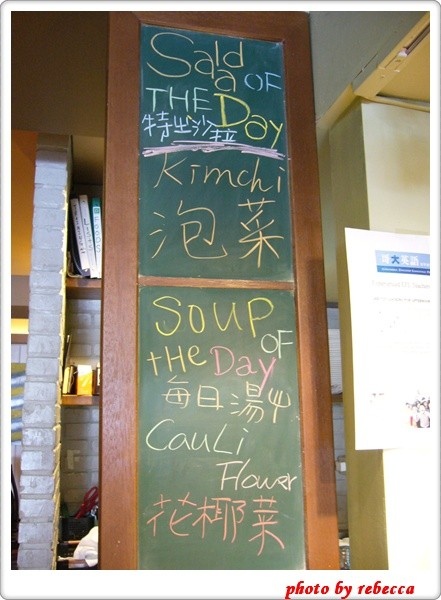 Salad OF
THE Day
特出沙拉
Kimchi
泡菜
Soup OF
THE Day
每日湯
Cauli
Flower
花椰菜
大英語
photo by rebecca